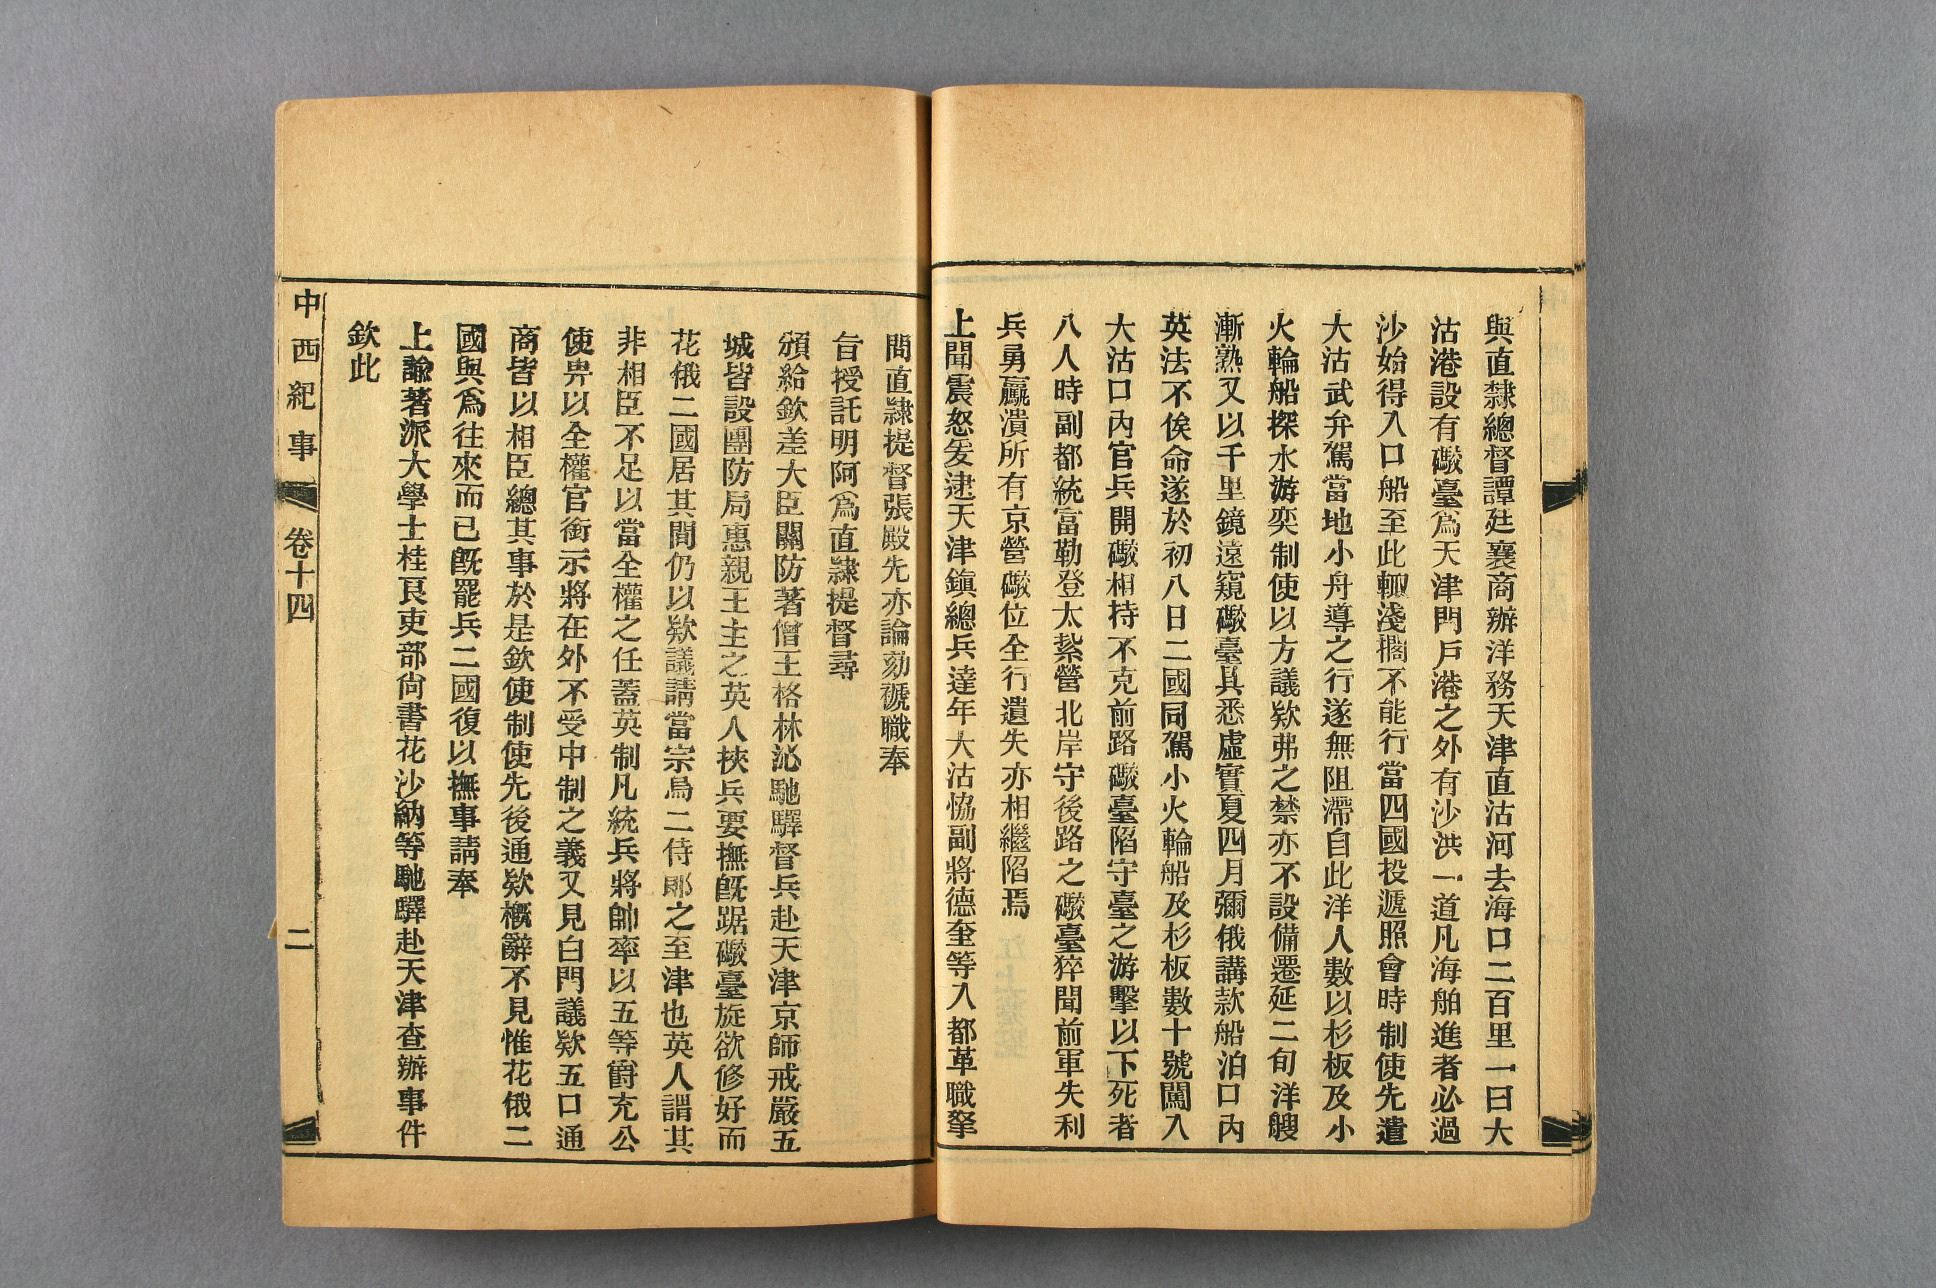 與直隸總督譚廷襄商辦洋務天津直沽河去海口二百里一曰大
沽港設有礮臺爲天津門戶港之外有沙洪一道凡海舶進者必過
沙始得入口船至此輒淺擱不能行當四國投遞照會時制使先遣
大沽武弁駕當地小舟導之行遂無阻滯自此洋人數以杉板及小
火輪船探水游奕制使以方議欵弗之禁亦不設備遷延二旬洋艘
漸熟又以千里鏡遠窺礮臺具悉虛實夏四月彌俄講款船泊口內
英法不俟命遂於初八日二國同駕小火輪船及杉板數十號闖入
大沽口內官兵開礮相持不克前路礮臺陷守臺之游擊以下死者
八人時副都統富勒登太紮營北岸守後路之礮臺猝聞前軍失利
兵勇羸潰所有京營礮位全行遺失亦相繼陷焉
上聞震怒爰逮天津鎭總兵達年大沽協副將德奎等入都革職拏
問直隸提督張殿先亦論劾褫職奉
旨授託明阿爲直隸提督尋
頒給欽差大臣關防著僧王格林沁馳驛督兵赴天津京師戒嚴五
城皆設團防局惠親王主之英人挾兵要撫旣踞礮臺旋欲修好而
花俄二國居其間仍以欵議請當宗烏二侍郞之至津也英人謂其
非相臣不足以當全權之任蓋英制凡統兵將帥率以五等爵充公
使畀以全權官銜示將在外不受中制之義又見白門議欵五口通
商皆以相臣總其事於是欽使制使先後通欵槪辭不見惟花俄二
國與爲往來而已旣罷兵二國復以撫事請奉
上諭著派大學士桂良吏部尙書花沙納等馳驛赴天津查辦事件
欽此
中西紀事 卷十四 二